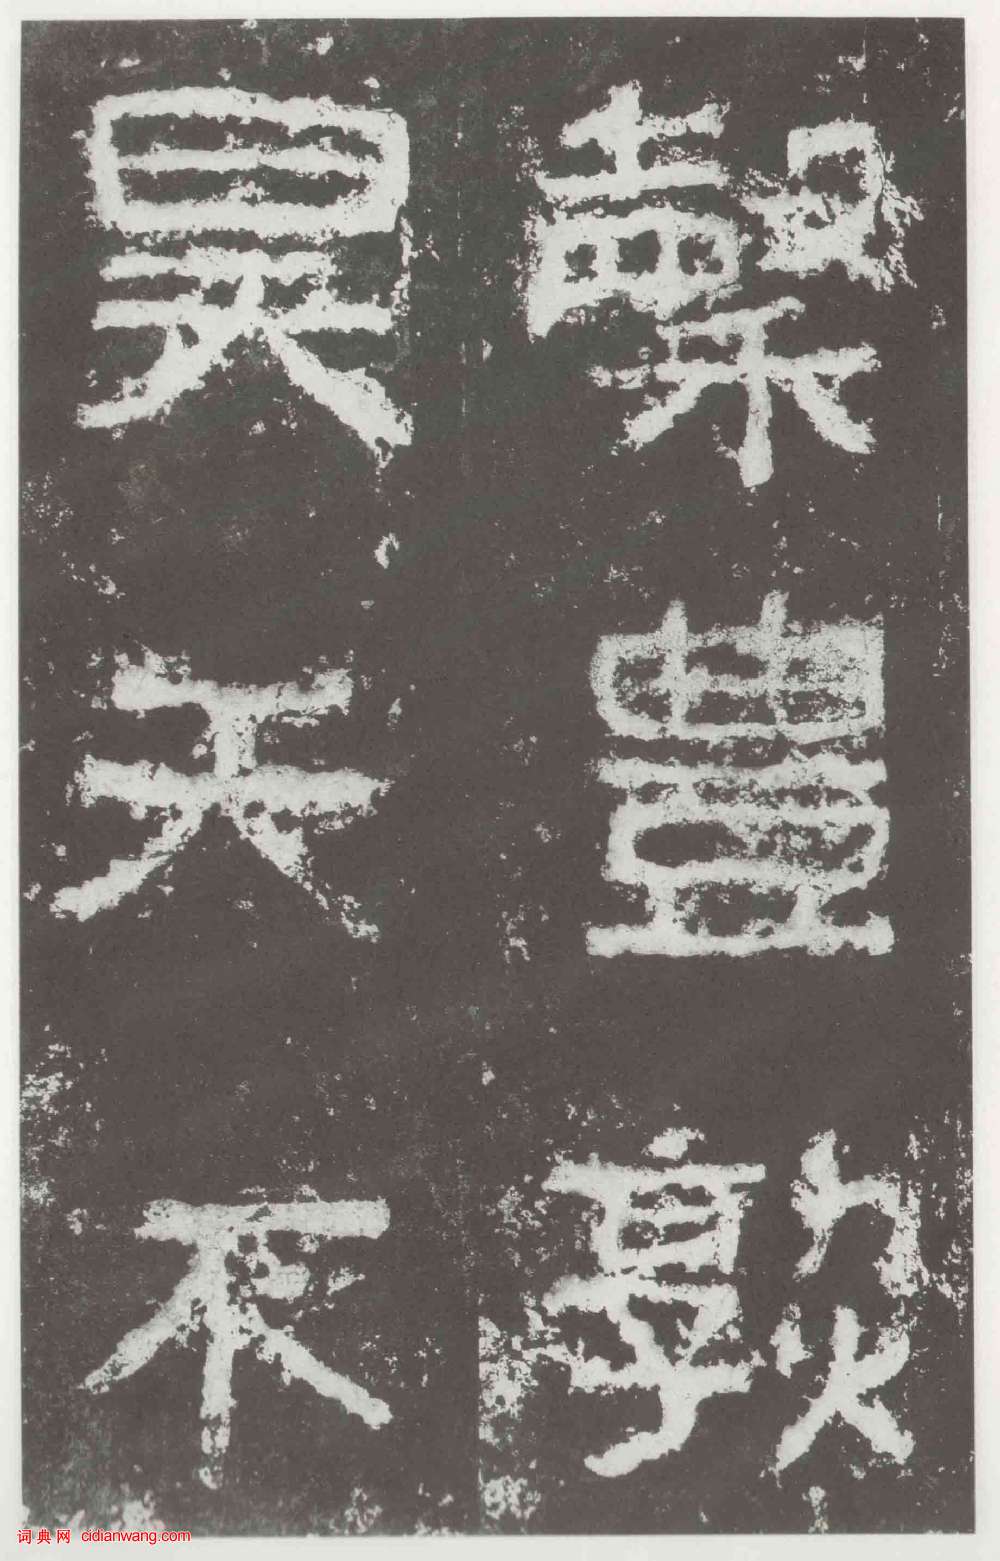 穀豐敦
昊天不
词典网 cidianwang.com